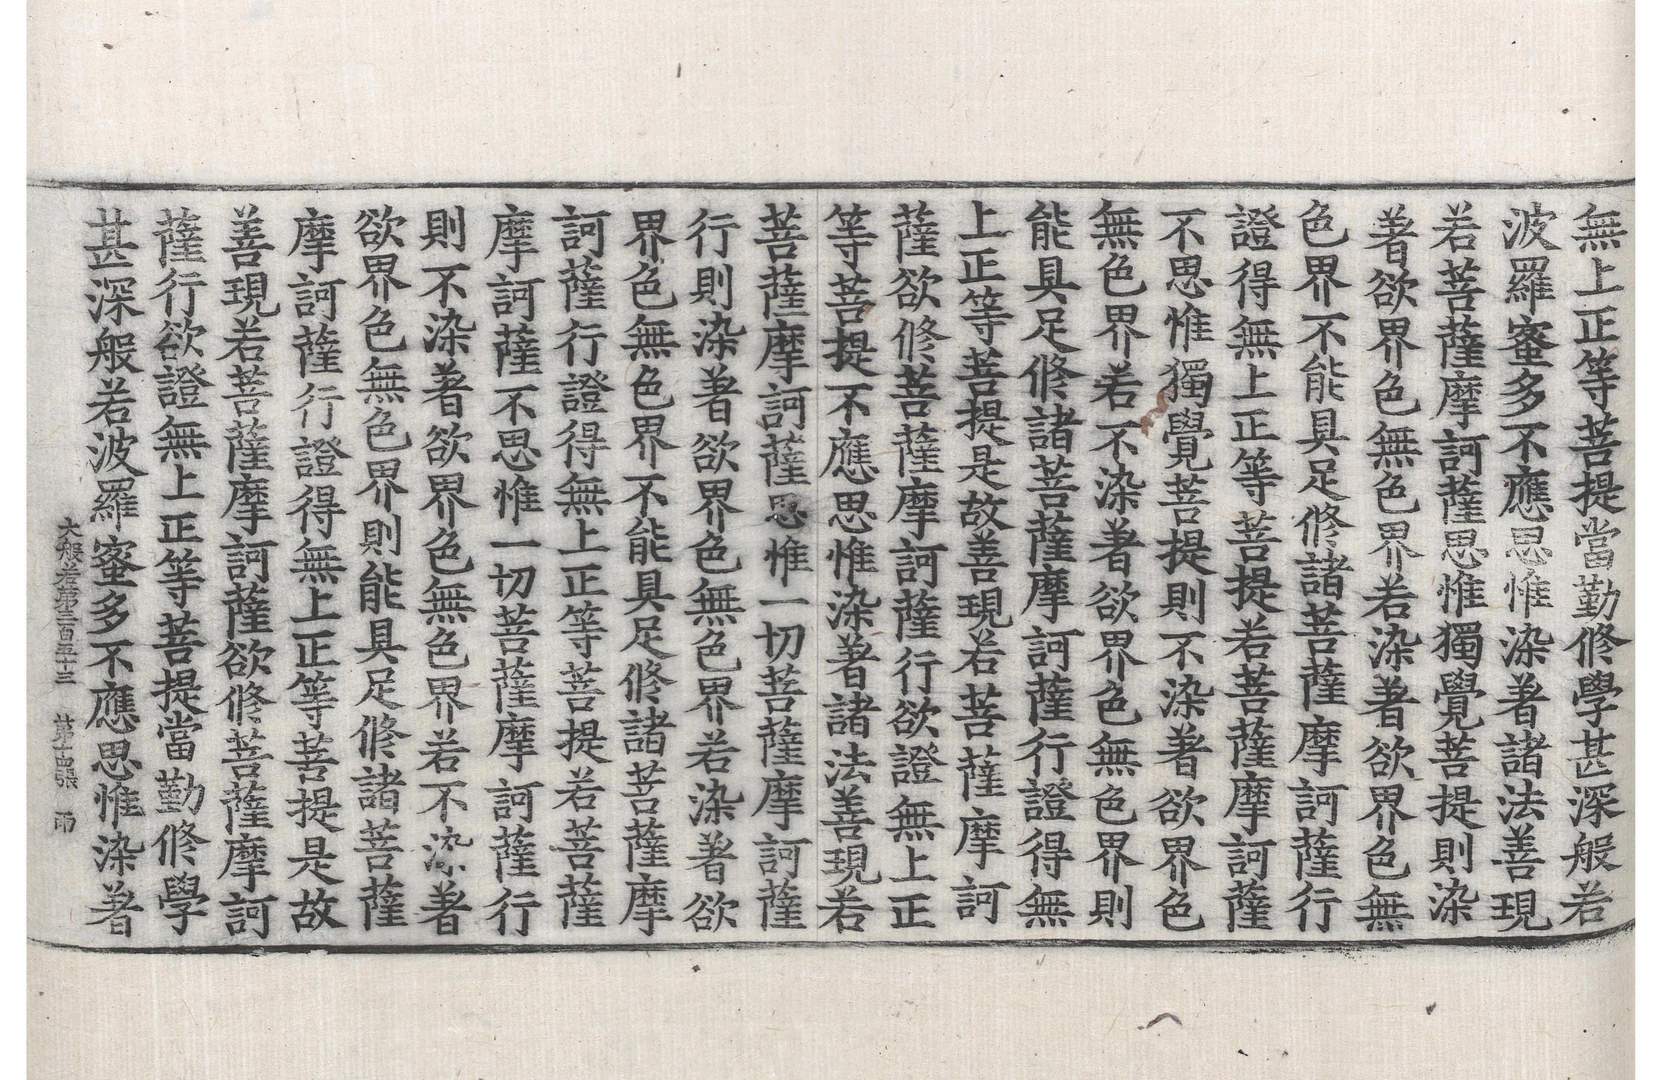 無上正等菩提當勤修學甚深般若
波羅蜜多不應思惟染著諸法善現
若菩薩摩訶薩思惟獨覺菩提則染
著欲界色無色界若染著欲界色無
色界不能具足修諸菩薩摩訶薩行
證得無上正等菩提若菩薩摩訶薩
不思惟獨覺菩提則不染著欲界色
無色界若不染著欲界色無色界則
能具足修諸菩薩摩訶薩行證得無
上正等菩提是故善現若菩薩摩訶
薩欲修菩薩摩訶薩行欲證無上正
等菩提不應思惟染著諸法善現若
菩薩摩訶薩思惟一切菩薩摩訶薩
行則染著欲界色無色界若染著欲
界色無色界不能具足修諸菩薩摩
訶薩行證得無上正等菩提若菩薩
摩訶薩不思惟一切菩薩摩訶薩行
則不染著欲界色無色界若不染著
欲界色無色界則能具足修諸菩薩
摩訶薩行證得無上正等菩提是故
善現若菩薩摩訶薩欲修菩薩摩訶
薩行欲證無上正等菩提當勤修學
甚深般若波羅蜜多不應思惟染著
大般若第三百五十三 第十四張 雨